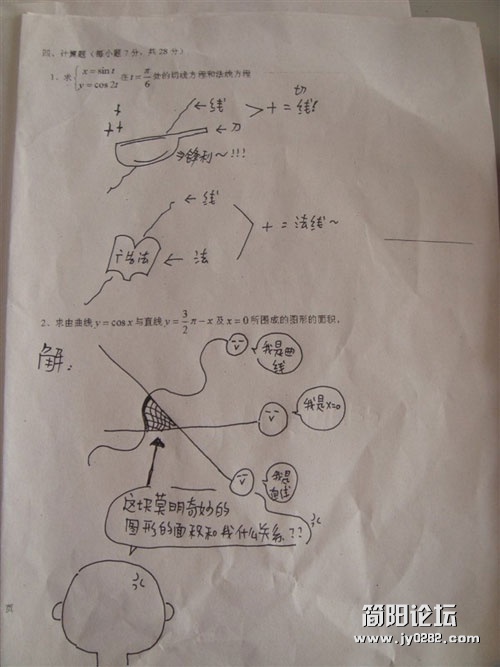 四、计算题（每小题7分，共28分）
1、求{x=sin t y=cos 2t 在 t=π/6 处的切线方程和法线方程
← 线
+ = 切线!
++
← 刀
锋利～!!!
← 线
+ = 法线～
广告法 ← 法
2、求由曲线 y=cos x 与直线 y=3/2π-x 及 x=0 所围成的图形的面积。
解：
我是曲线
我是x=0
我是直线
这块莫明奇妙的
图形的面积和我什么关系??
页
简阳论坛
www.jy0282.com